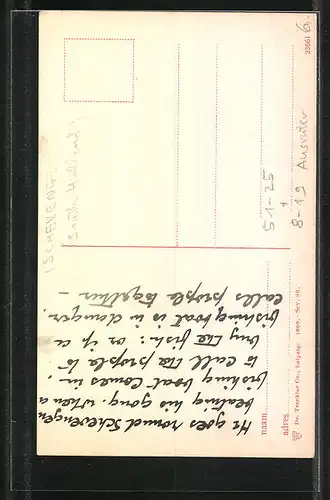 He goes round Schevengen
beating his gong. When a
fishing boat comes in:
to call the people to
buy the fish: or if a
fishing boat is in danger.
calls people together –
naam
adres
Dr. Trenkler Co., Leipzig. 1908. Sch. 88.
(SCHEVENG.
51-25
+
8-19 Ausrufer
23661
6.